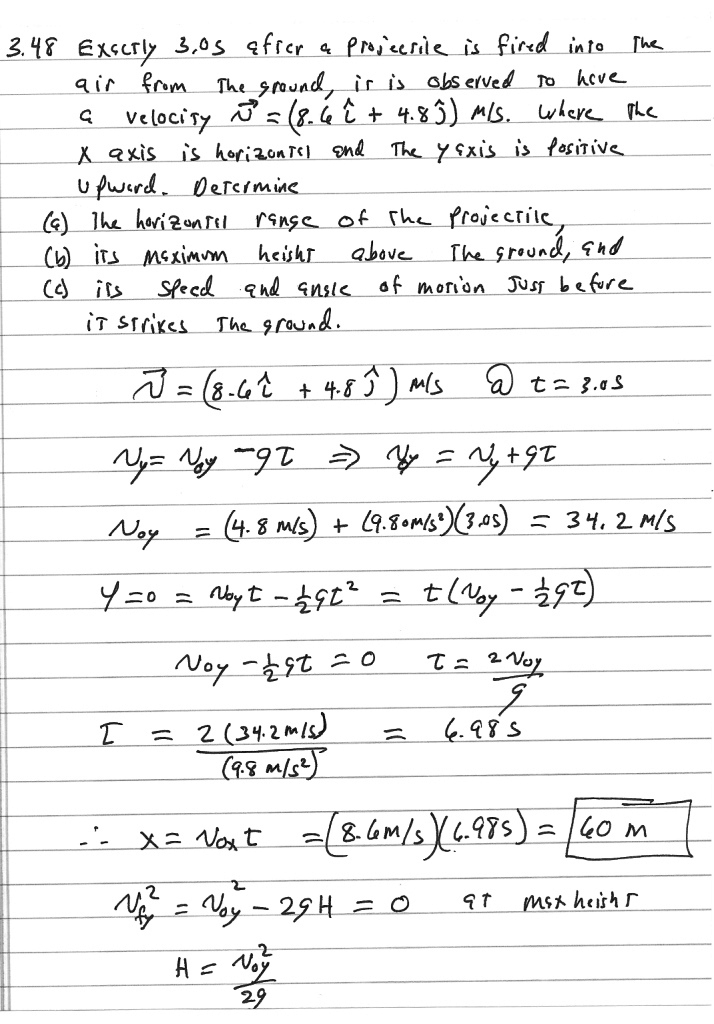 3.48 Exactly 3.0s after a projectile is fired into the
air from the ground, it is observed to have
a velocity v⃗ = (8.6 î + 4.8 ĵ) m/s. Where the
x axis is horizontal and the y axis is positive
upward. Determine
(a) The horizontal range of the projectile,
(b) its maximum height above the ground, and
(c) its speed and angle of motion just before
it strikes the ground.
v⃗ = (8.6 î + 4.8 ĵ) m/s @ t = 3.0s
v_y = v_oy - gt ⇒ v_oy = v_y + gt
v_oy = (4.8 m/s) + (9.80 m/s²)(3.0s) = 34.2 m/s
y = 0 = v_oy t - ½gt² = t(v_oy - ½gt)
v_oy - ½gt = 0 t = 2v_oy/g
t = 2(34.2 m/s)/(9.8 m/s²) = 6.98 s
∴ x = v_ox t = (8.6 m/s)(6.98s) = 60 m
v_fy² = v_oy² - 2gH = 0 at max height
H = v_oy²/2g